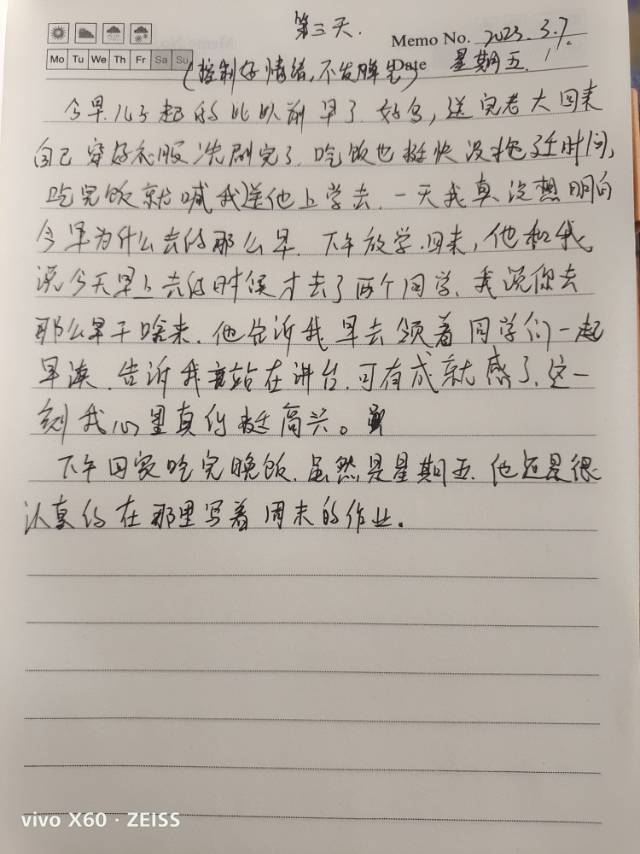 第三天.
Memo No. 2023. 3.7/17.
Mo Tu We Th Fr Sa Su
Date 星期五.
(控制好情绪,不发脾气)
今早儿子起的比以前早了好多,送完老大回来
自己穿好衣服洗刷完了.吃饭也挺快没拖延时间,
吃完饭就喊我送他上学去.一天我真没想明白
今早为什么去的那么早.下午放学回来,他和我
说今天早上去的时候才去了两个同学.我说你去
那么早干啥来.他告诉我早去领着同学们一起
早读.告诉我站在讲台.可有成就感了.这一
刻我心里真的挺高兴。
下午回家吃完晚饭.虽然是星期五.他还是很
认真的在那里写着周末的作业。
vivo X60 · ZEISS